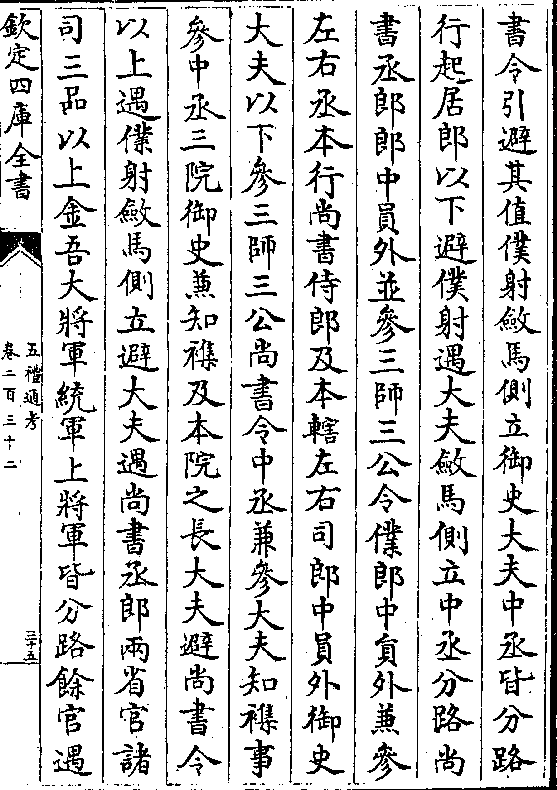 書令引避其值僕射斂馬側立御史大夫中丞皆分路
行起居郎以下避僕射遇大夫斂馬側立中丞分路尚
書丞郎郎中員外並參三師三公令僕郎中員外兼參
左右丞本行尚書侍郎及本轄左右司郎中員外御史
大夫以下參三師三公尚書令中丞兼參大夫知襍事
參中丞三院御史兼知襍及本院之長大夫避尚書令
以上遇僕射斂馬側立避大夫遇尚書丞郎兩省官諸
司三品以上金吾大將軍統軍上將軍皆分路餘官遇
欽定四庫全書
五禮通考
卷二百三十二
三十五